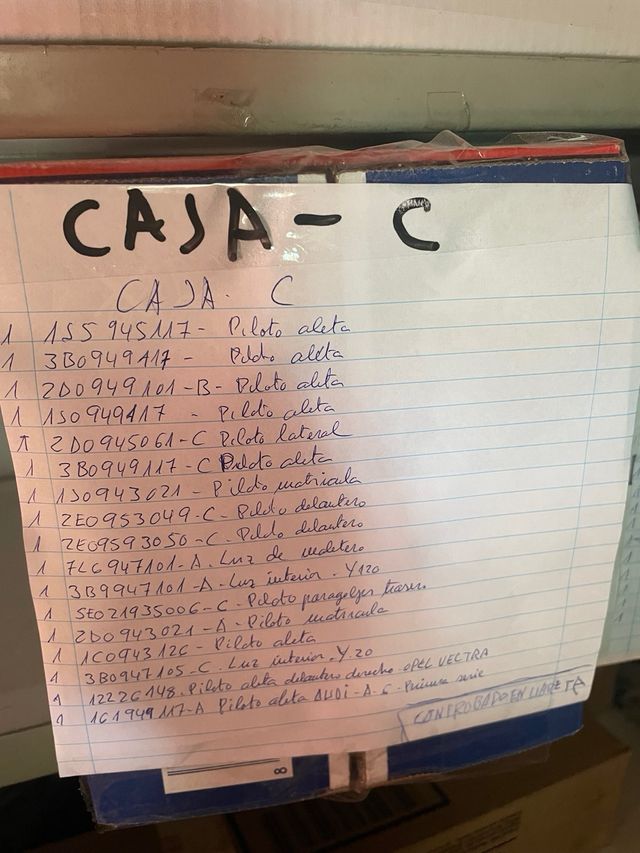 CAJA - C
CAJA. C
1 1S5 945117 - Piloto aleta
1 3B0949117 - Piloto aleta
1 2D0949101-B- Piloto aleta
1 1J0949117 - Piloto aleta
1 2D0945061-C Piloto lateral
1 3B0949117-C Piloto aleta
1 1J0943021 - Piloto matricula
1 2E0953049-C- Piloto delantero
1 2E09593050-C- Piloto delantero
1 7L6947101-A- Luz de maletero
1 3B9947101-A- Luz interior. Y120
1 5E021935006-C- Piloto paragolpes trasero
1 2D0943021-A- Piloto matricula
1 1C0943126- Piloto aleta
1 3B0947105-C. Luz interior. Y.20
1 12226148. Piloto aleta delantero derecho OPEL VECTRA
1 161949117-A Piloto aleta AUDI-A-6-Primera serie
CONTROBADO EN
8